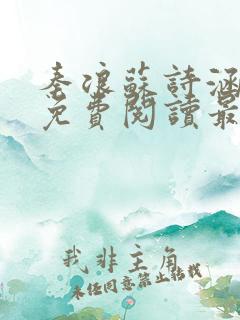 秦浪蘇詩涵
免費閱讀最
我非主角
未经同意禁止转载